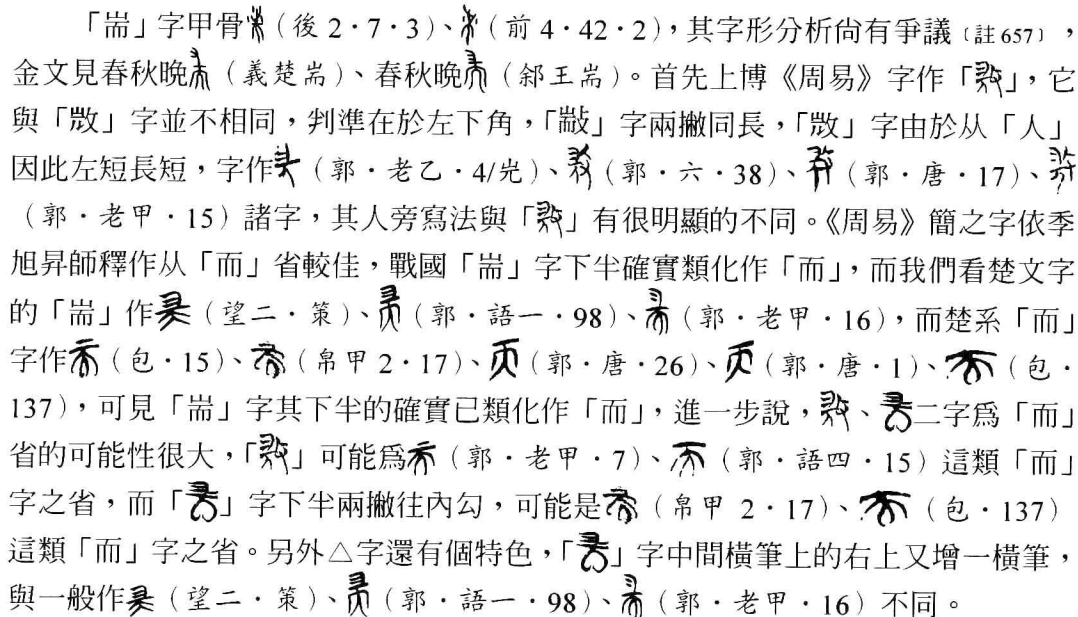 「耑」字甲骨（後 2．7．3）、（前 4．42．2），其字形分析尚有爭議〔註657〕，
金文見春秋晚（義楚耑）、春秋晚（郐王耑）。首先上博《周易》字作「」，它
與「」字並不相同，判準在於左下角，「」字兩撇同長，「」字由於从「人」
因此左短長短，字作（郭．老乙．4/）、（郭．六．38）、（郭．唐．17）、
（郭．老甲．15）諸字，其人旁寫法與「」有很明顯的不同。《周易》簡之字依季
旭昇師釋作从「而」省較佳，戰國「耑」字下半確實類化作「而」，而我們看楚文字
的「耑」作（望二．策）、（郭．語一．98）、（郭．老甲．16），而楚系「而」
字作（包．15）、（帛甲 2．17）、（郭．唐．26）、（郭．唐．1）、（包．
137），可見「耑」字其下半的確實已類化作「而」，進一步說，、二字爲「而」
省的可能性很大，「」可能爲（郭．老甲．7）、（郭．語四．15）這類「而」
字之省，而「」字下半兩撇往內勾，可能是（帛甲 2．17）、（包．137）
這類「而」字之省。另外△字還有個特色，「」字中間橫筆上的右上又增一橫筆，
與一般作（望二．策）、（郭．語一．98）、（郭．老甲．16）不同。